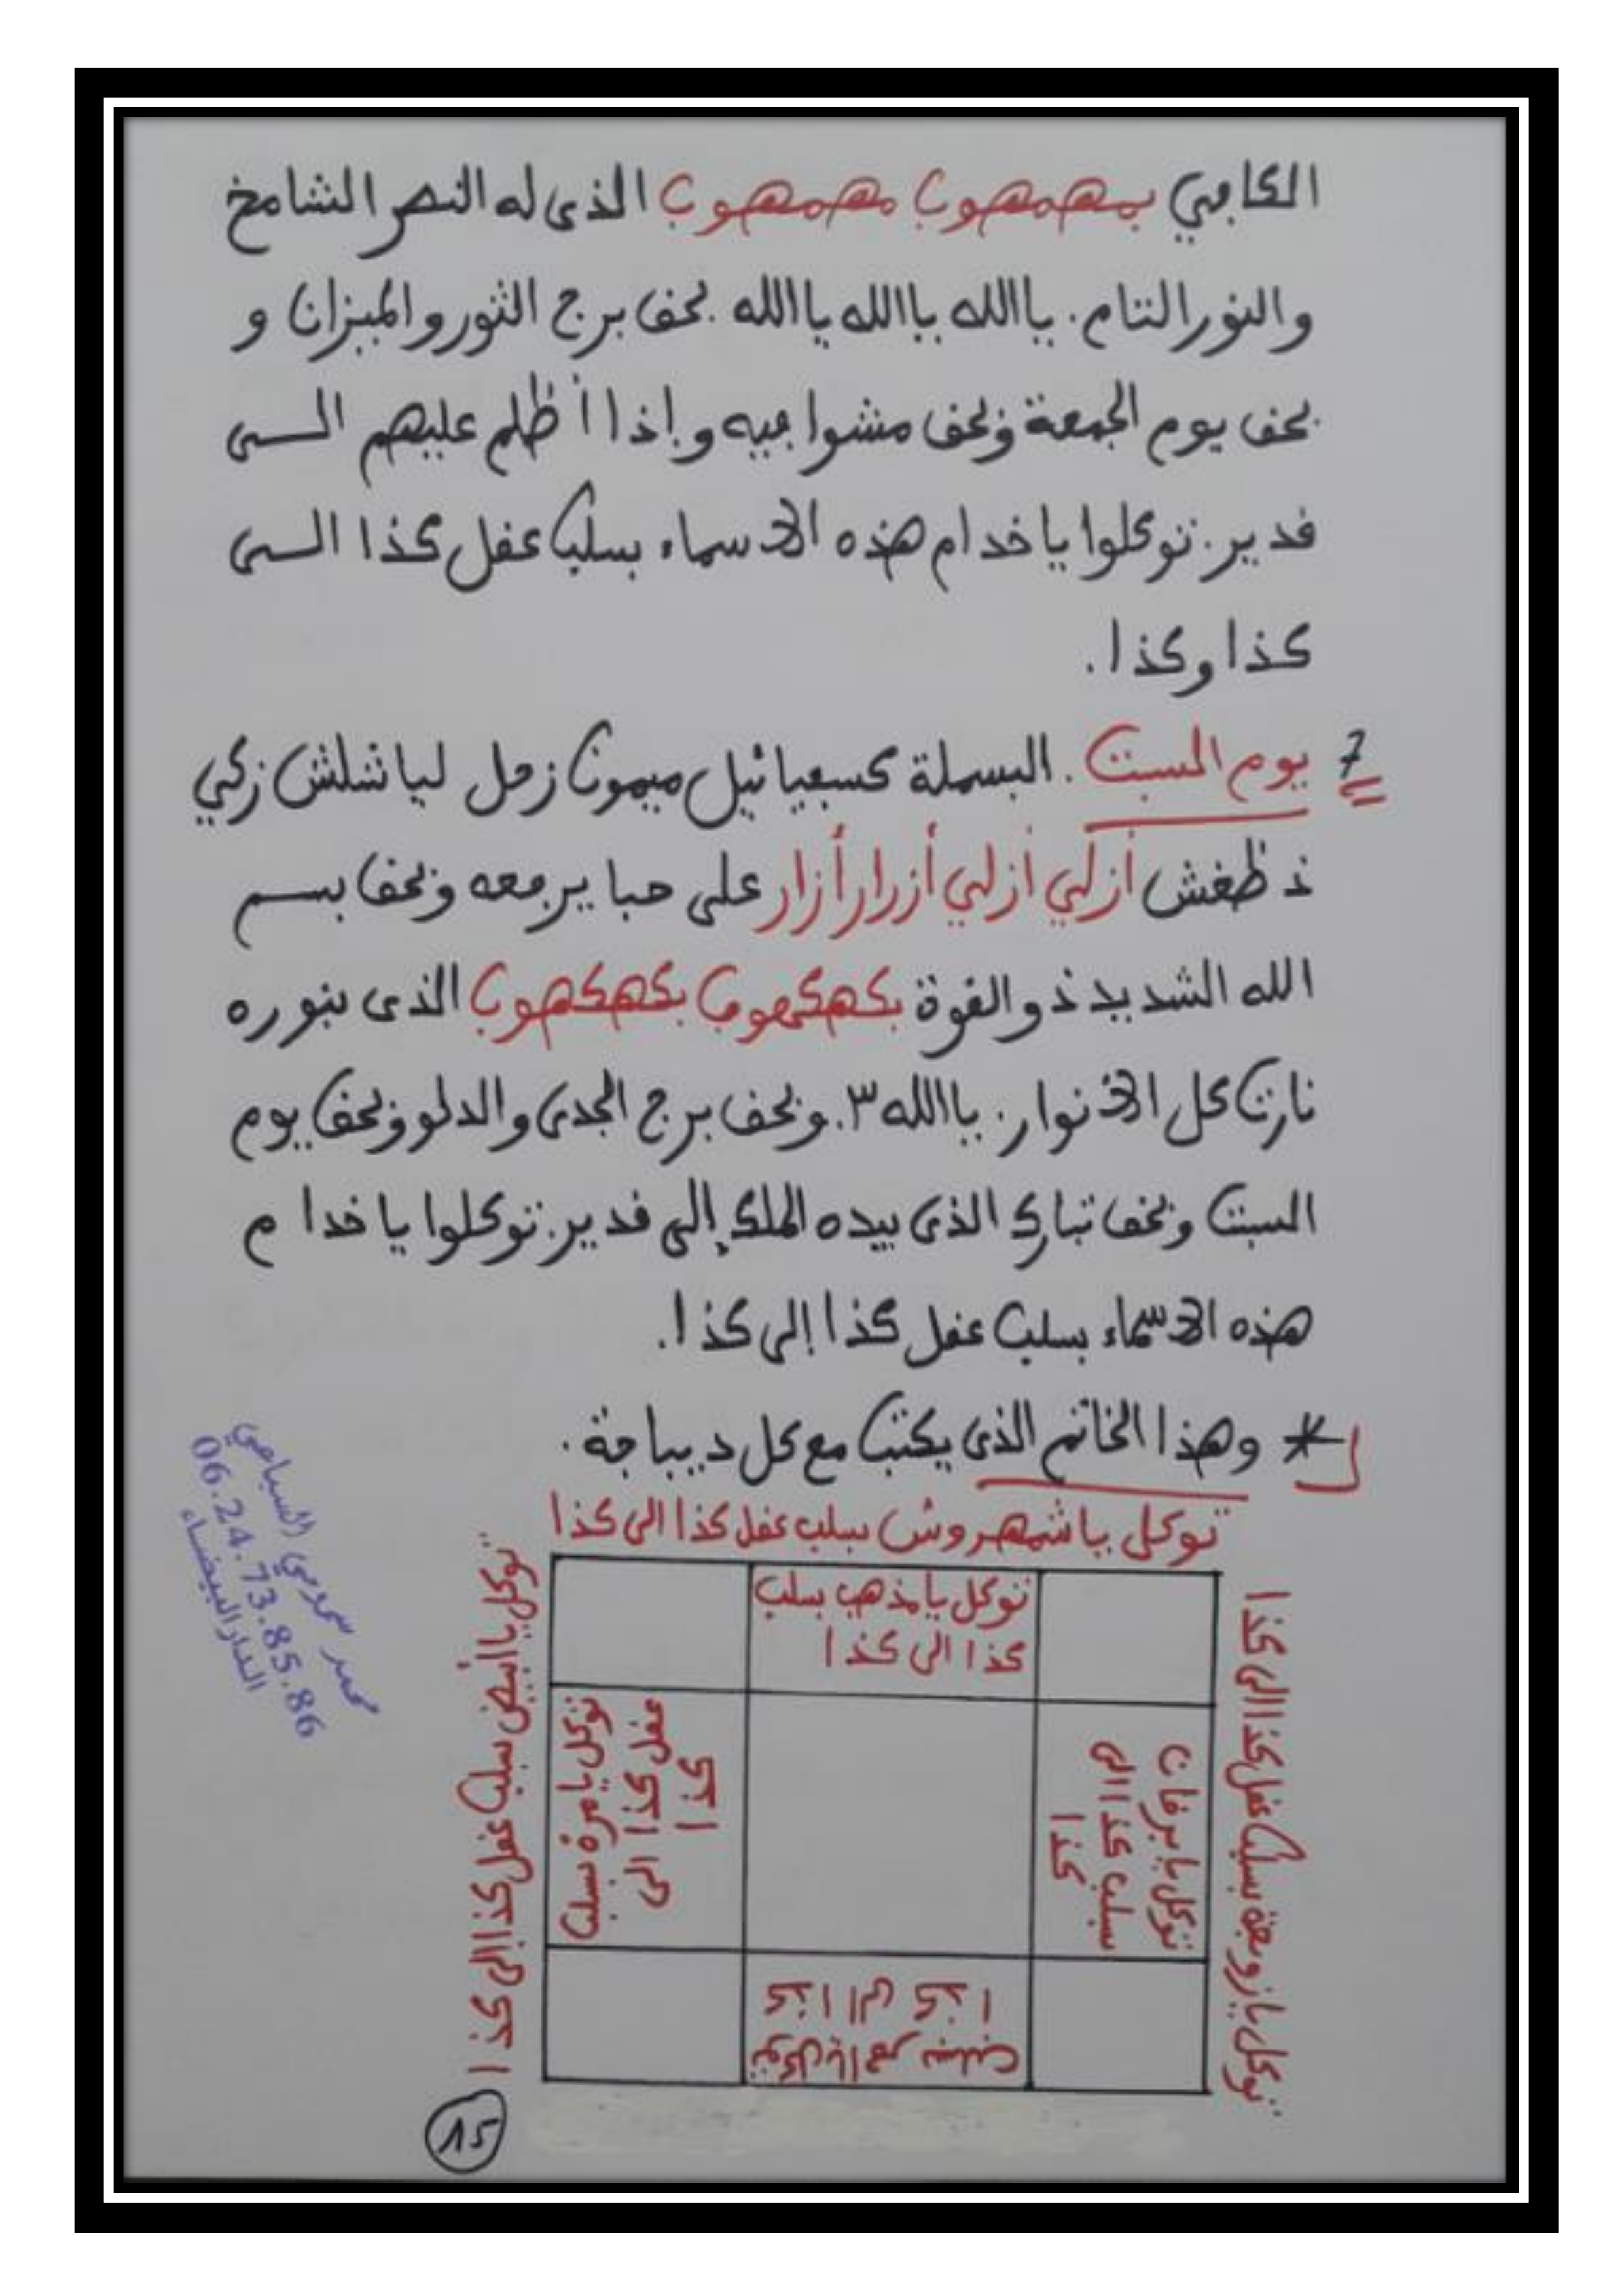 الكافي بهمهوب مهمهوب الذى له النصر الشامخ
والنور التام. ياالله ياالله ياالله. بحق برج الثور والميزان و
بحق يوم الجمعة وبحق مشوا فيه وإذا أظلم عليهم الــى
قدير. توكلوا ياخدام هذه الاسماء بسلب عقل كذا الــى
كذا وكذا.
7 يوم السبت. البسملة كسفيائيل ميمون زحل لياشلش زكي
ذ ظغش أزلي أزلي أزرار أزار على حبا يرجعه وبحق بسم
الله الشديد ذو القوة بكهكهوب بكهكهوب الذى بنوره
نارت كل الانوار. ياالله ٣. وبحق برج الجدى والدلو وبحق يوم
السبت وبحق تبارك الذى بيده الملك إلى قدير. توكلوا ياخدام
هذه الاسماء بسلب عقل كذا إلى كذا.
* وهذا الخاتم الذى يكتب مع كل ديباجة.
توكل ياشمهروش بسلب عقل كذا الى كذا
توكل يامذهب بسلب
كذا الى كذا
توكل يازوبعة بسلب عقل كذا الى كذا
توكل يابرقان
بسلب كذا الى
كذا
توكل يامرة بسلب
عقل كذا الى
كذا
توكل ياأبيض بسلب عقل كذا الى كذا
توكل يااحمر بسلب
كذا الى كذا
محمد
06.24.73.85.86
الدار البيضاء
15